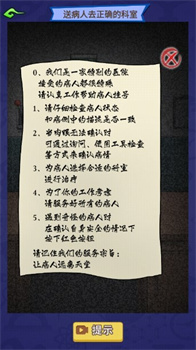 送病人去正确的科室
0、我们是一家特别的医院
接受的病人都很特殊
请认真工作帮助病人挂号
1、请仔细检查病人状态
和病例中的描述是否一致
2、当明眼无法确认时
可通过询问、使用工具检查
等方式来确认病情
3、为病人选择合适的科室
进行治疗
4、为了你的工作考虑
请服务好所有的病人
5、遇到奇怪的病人时
在确认自身安全的情况下
按下红色按钮
请记住我们的服务宗旨:
让病人远离天堂
提示